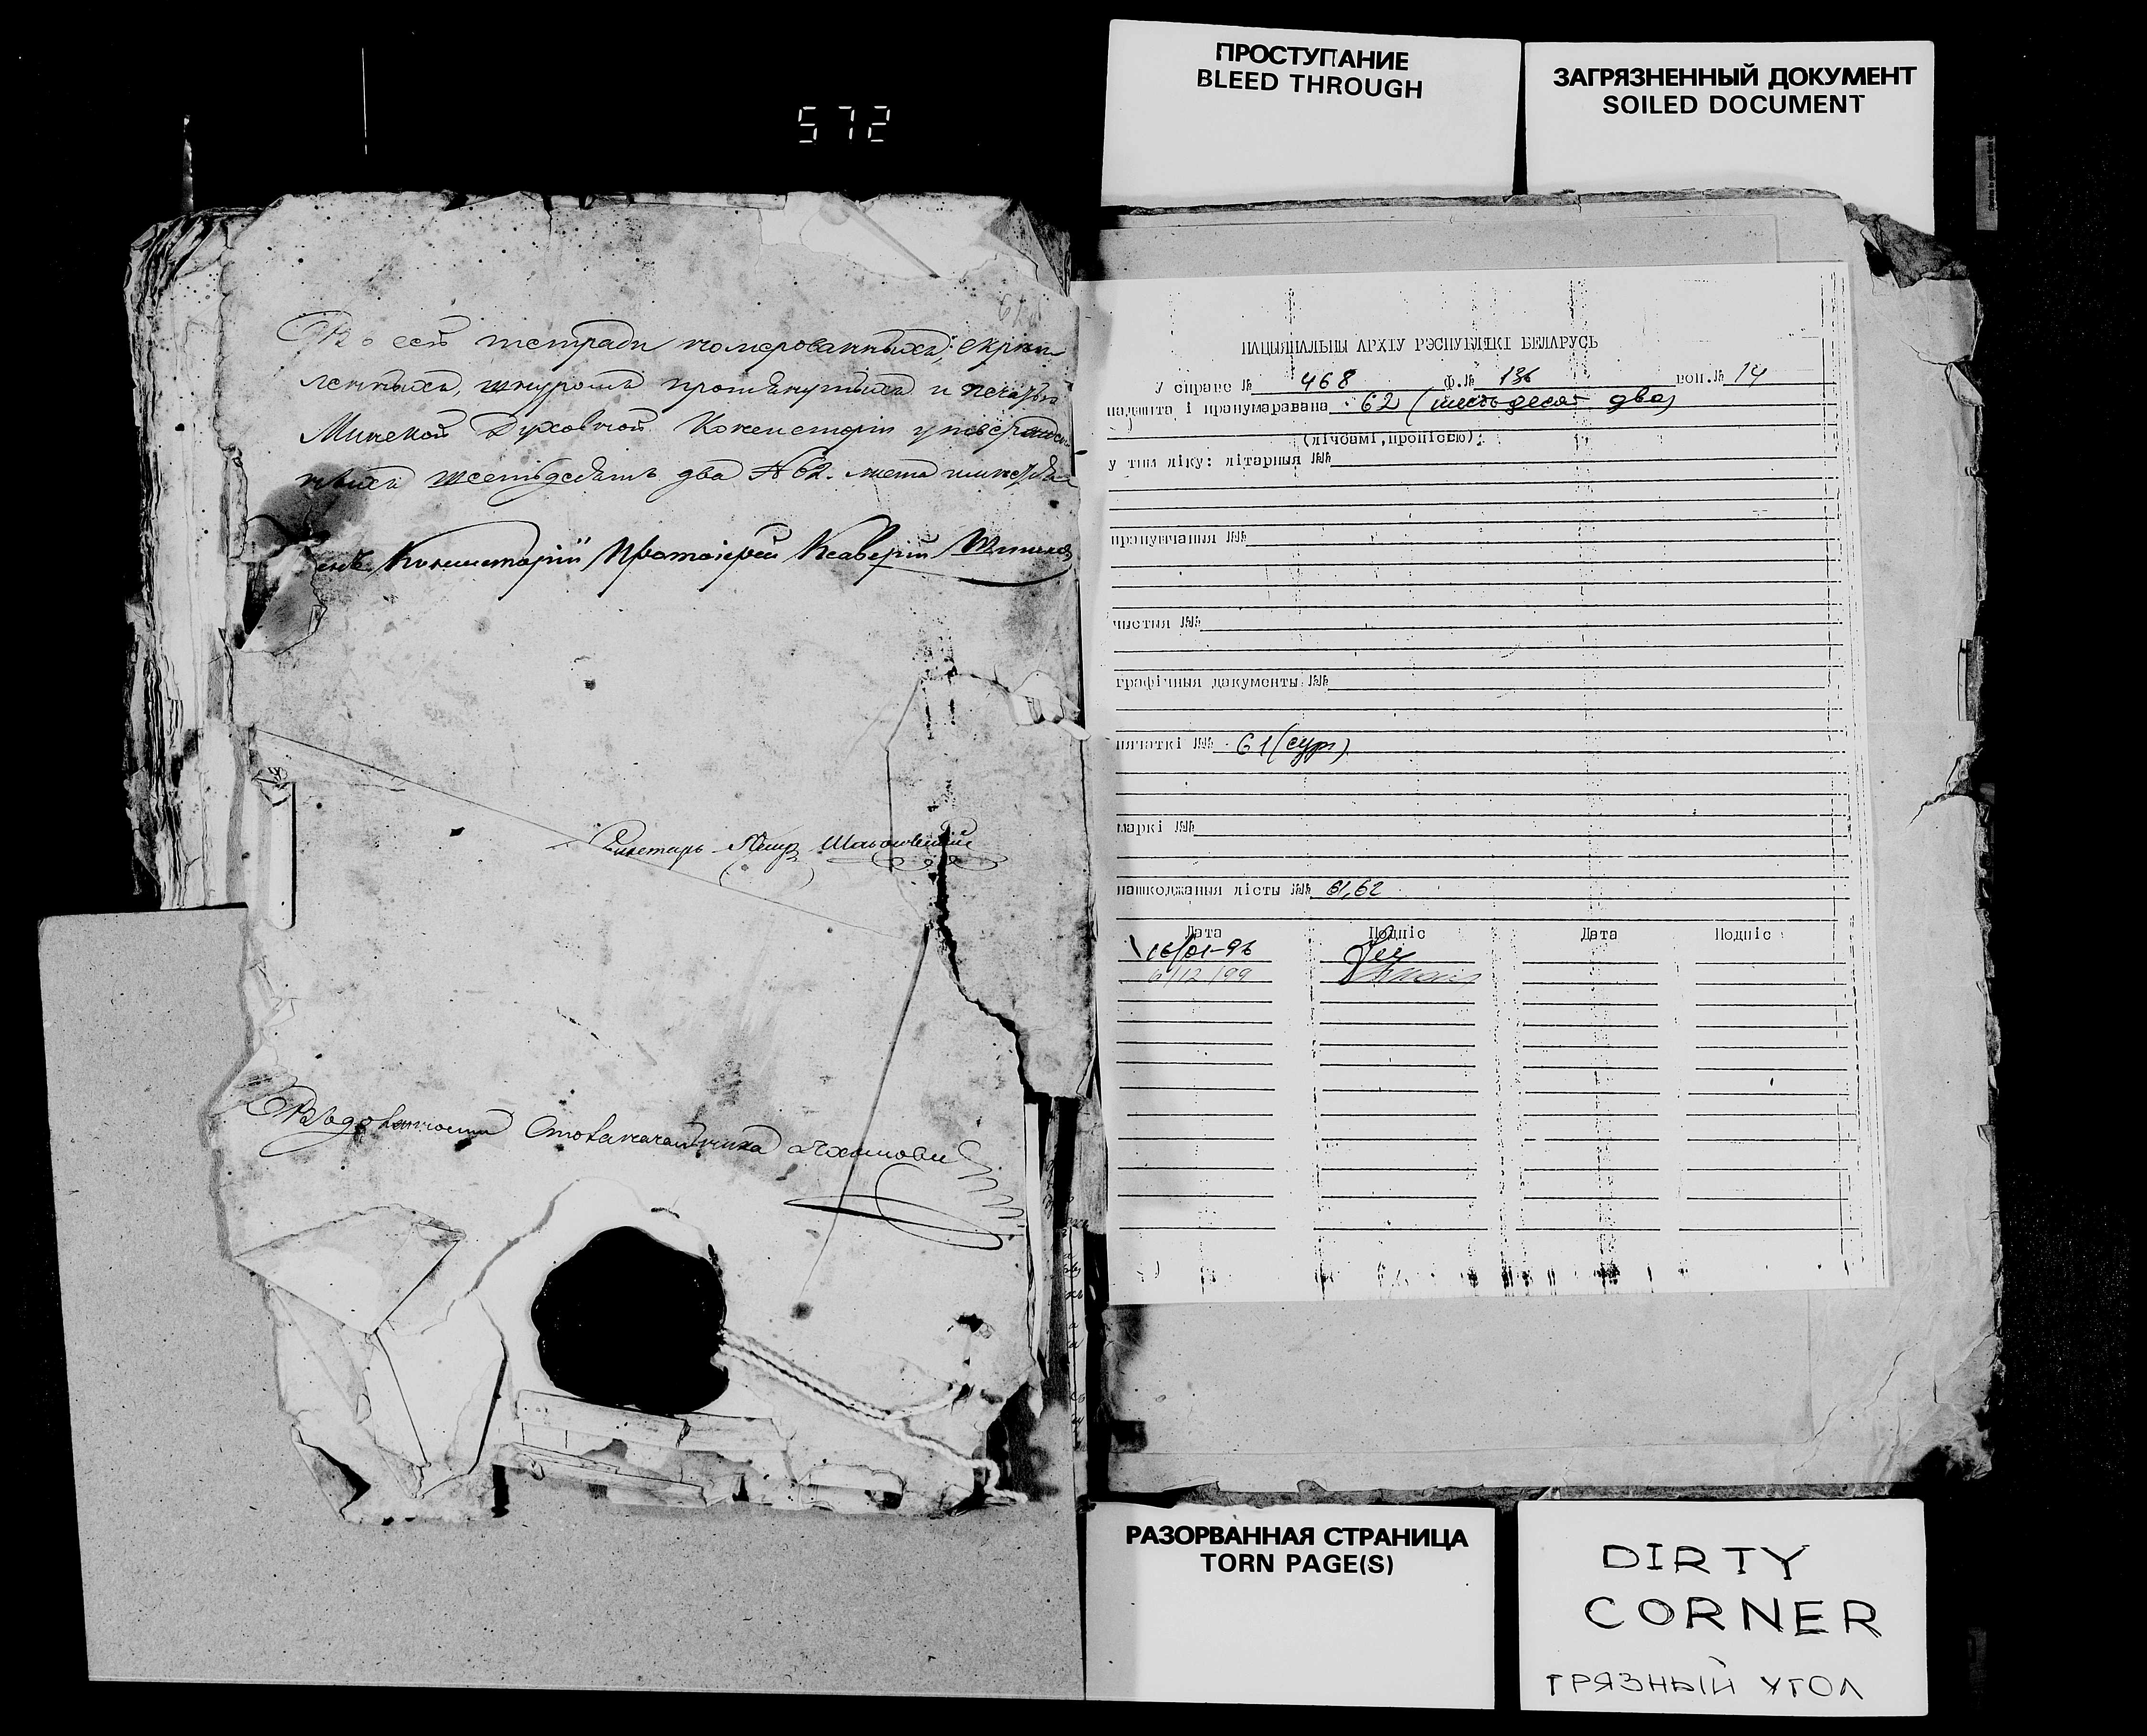 572
ПРОСТУПАНИЕ
BLEED THROUGH
ЗАГРЯЗНЕННЫЙ ДОКУМЕНТ
SOILED DOCUMENT
Въ сей тетради номерованныхъ, скреп-
ленныхъ, шнуромъ протянутыхъ и печатью
Минской Духовной Консисторіи утвержден-
ныхъ шестьдесятъ два № 62. листа
Консисторіи Протоіерей Ксаверій
Секретарь Петръ
Въ должности Столоначальника
НАЦЫЯНАЛЬНЫ АРХІЎ РЭСПУБЛІКІ БЕЛАРУСЬ
У справе № 468 Ф.№ 136 воп.№ 14
падшыта і пранумаравана 62 (шестьдесят два)
(лічбамі, пропіссю)
у тым ліку: літарныя №№
прапушчаныя №№
чыстыя №№
графічныя дакументы №№
пячаткі №№ 61 (сург)
маркі №№
пашкоджаныя лісты №№ 61,62
Дата Подпіс Дата Подпіс
16/01-96
/12/99
РАЗОРВАННАЯ СТРАНИЦА
TORN PAGE(S)
DIRTY
CORNER
ГРЯЗНЫЙ УГОЛ